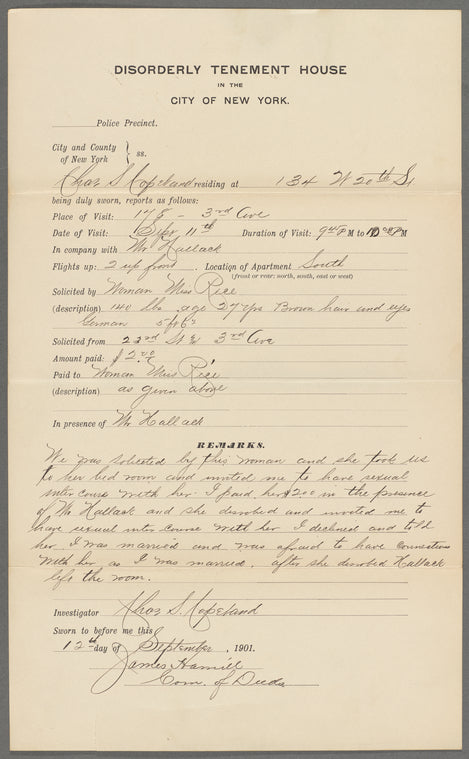 DISORDERLY TENEMENT HOUSE
IN THE
CITY OF NEW YORK.
Police Precinct.
City and County
of New York } ss.
Chas S. Copeland residing at 134 W 20th St
being duly sworn, reports as follows:
Place of Visit: 175 - 3rd Ave
Date of Visit: 11th Duration of Visit: 9 P M to M
In company with Mr Hallack
Flights up: 2 up front. Location of Apartment South
(front or rear; north, south, east or west)
Solicited by Woman Miss Rice
(description) 140 lbs age 27 yrs Brown hair and eyes
German 5 ft 6"
Solicited from 23rd St & 3rd Ave
Amount paid: $2.00
Paid to Woman Miss Rice
(description) as given above
In presence of Mr Hallack
REMARKS.
We was solicited by this woman and she took us
to her bed room and invited me to have sexual
inter course with her. I paid her $2.00 in the presence
of Mr Hallack and she disrobed and invited me to
have sexual inter course with her I declined and told
her I was married and was afraid to have
with her as I was married. after she disrobed Hallack
left the room.
Investigator Chas S. Copeland
Sworn to before me this
12th day of September, 1901.
James Hamill
Com. of Deeds